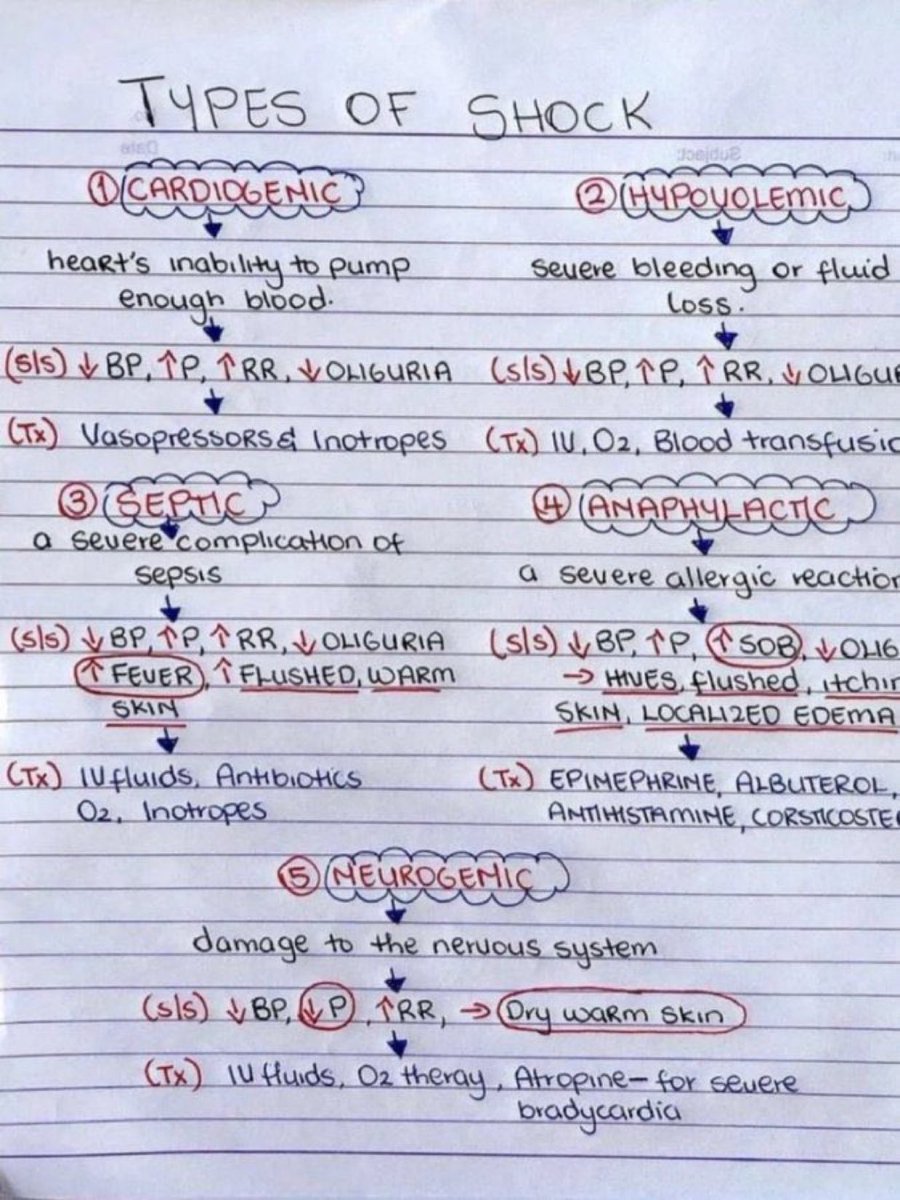 TYPES OF SHOCK
Date
Subject:
① CARDIOGENIC
heart's inability to pump
enough blood.
(S/S) ↓ BP, ↑ P, ↑ RR, ↓ OLIGURIA
(Tx) Vasopressors & Inotropes
② HYPOVOLEMIC
severe bleeding or fluid
loss.
(S/S) ↓ BP, ↑ P, ↑ RR, ↓ OLIGU
(Tx) IV, O2, Blood transfusio
③ SEPTIC
a severe complication of
sepsis
(S/S) ↓ BP, ↑ P, ↑ RR, ↓ OLIGURIA
↑ FEVER, ↑ FLUSHED, WARM
SKIN
(Tx) IV fluids, Antibiotics
O2, Inotropes
④ ANAPHYLACTIC
a severe allergic reaction
(S/S) ↓ BP, ↑ P, ↑ SOB, ↓ OLIG
→ HIVES, flushed, itchin
SKIN, LOCALIZED EDEMA
(Tx) EPIMEPHRINE, ALBUTEROL,
ANTIHISTAMINE, CORSTICOSTE
⑤ NEUROGEMIC
damage to the nervous system
(S/S) ↓ BP, ↓ P, ↑ RR, → Dry warm skin
(Tx) IV fluids, O2 theray, Atropine – for severe
bradycardia